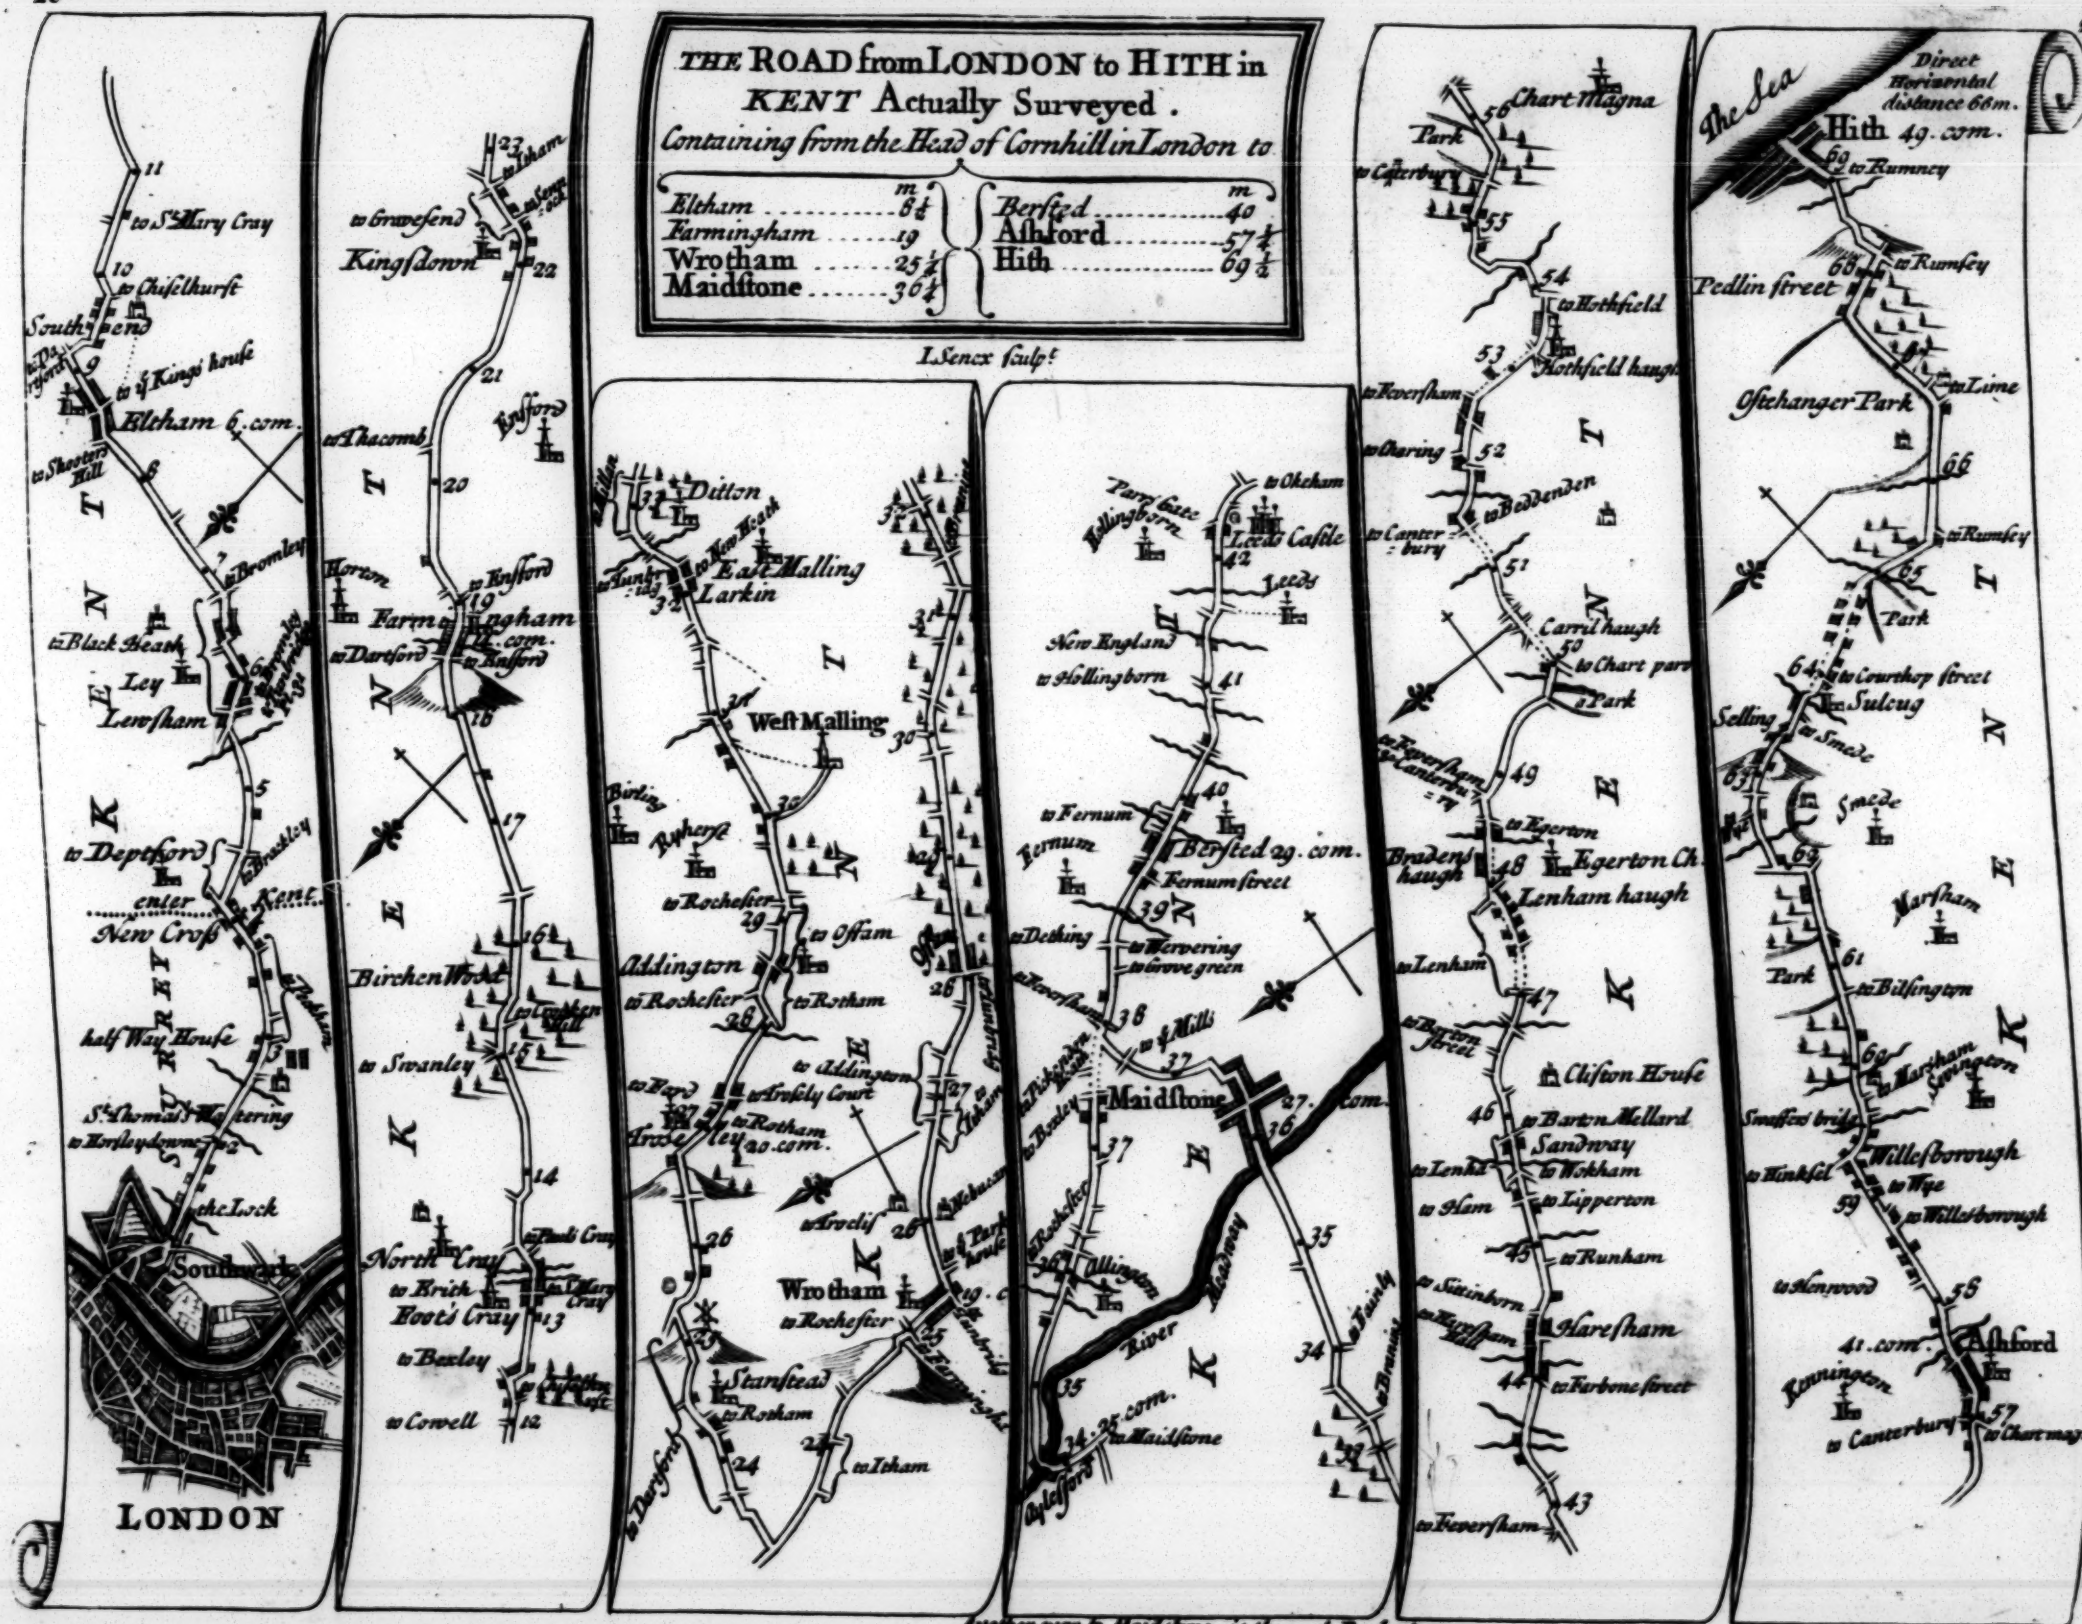 THE ROAD from LONDON to HITH in
KENT Actually Surveyed.
Containing from the Head of Cornhill in London to
m
Eltham 8¼
Farmingham 19
Wrotham 25¼
Maidſtone 36¼
m
Berſted 40
Aſhford 57¼
Hith 69½
I. Senex ſculpt.
11
to St. Mary Cray
10
to Chiſelhurſt
Southend
9
to ye Kings houſe
Eltham 6. com.
to Shooters
Hill
8
7
to Bromley
to Black Heath
6
Ley
Lewſham
5
to Deptford
to Brockley
enter Kent
New Croſs
to Peckham
half Way House
3
St. Thomas's Wattering
to Horſleydowne
2
the Lock
1
Southwark
LONDON
KENT
SURREY
23
to Itham
to Graveſend
Kingſdown
22
21
Enſford
to Thacomb
20
Horton
to Enſford
19
Farmingham
12. com.
to Dartford
to Enſford
18
17
16
Birchen Wood
to Crocken
Hill
to Swanley
15
14
to Pauls Cray
North Cray
to Erith
to St. Mary
Cray
Foots Cray
13
to Bexley
to Cowell
12
KENT
33
Ditton
to New Heath
East Malling
Larkin
32
31
Weſt Malling
30
Birling
Ryherſt
to Rocheſter
29
to Offam
Addington
to Rocheſter
to Rotham
28
to Ford
to Troſely Court
27
to Rotham
Troſeley
20. com.
26
25
Stanſtead
to Rotham
to Dartford
24
32
31
30
29
Offam
28
to Addington
27
to Itham
to Trocliſ
26
to ye Park
houſe
Wrotham
to Rocheſter
25
to Farmingham
to Itham
KENT
to Okeham
Hollingborn
Leeds Caſtle
42
Leeds
New England
to Hollingborn
41
40
to Fernum
Fernum
Berſted 29. com.
Fernum ſtreet
39
to Dething
to Wervering
to Grove green
to Feverſham
38
to ye Mills
37
Maidſtone
27. com.
36
to Boxley
37
to Rocheſter
36
Allington
River Meadway
35
34
25. com.
to Maidſtone
Aylesford
35
34
to Fainly
33
KENT
56
Chart Magna
Park
to Caterbury
55
54
to Hothfield
53
Hothfield haugh
to Feverſham
52
to Charing
to Beddenden
to Canter
=bury
51
Carril haugh
50
to Chart parv
a Park
to Feverſham
& Canterbu
=ry
49
to Egerton
Bradens
haugh
48
Egerton Ch.
Lenham haugh
to Lenham
47
to Borton
ſtreet
Clifton Houſe
46
to Barton Mellard
Sandway
to Lenha
to Wokham
to Ham
to Lipperton
45
to Runham
to Sittinborn
to Harſham
Hall
Hareſham
44
to Farbone ſtreet
43
to Feverſham
KENT
The Sea
Direct
Horizental
distance 66m.
Hith 49. com.
69
to Rumney
68
to Rumſey
Pedlin ſtreet
67
to Lime
Oſtehanger Park
66
to Rumſey
65
Park
64
to Courthop ſtreet
Sulcug
Selling
to Smede
63
Smede
62
Marſham
Park
61
to Bilſington
60
to Marſham
Sevington
Smaffers bridg
Willeſborough
to Hinkſel
to Wye
59
to Willeſborough
to Henwood
58
41. com.
Aſhford
Kennington
57
to Canterbury
to Chart mag
KENT